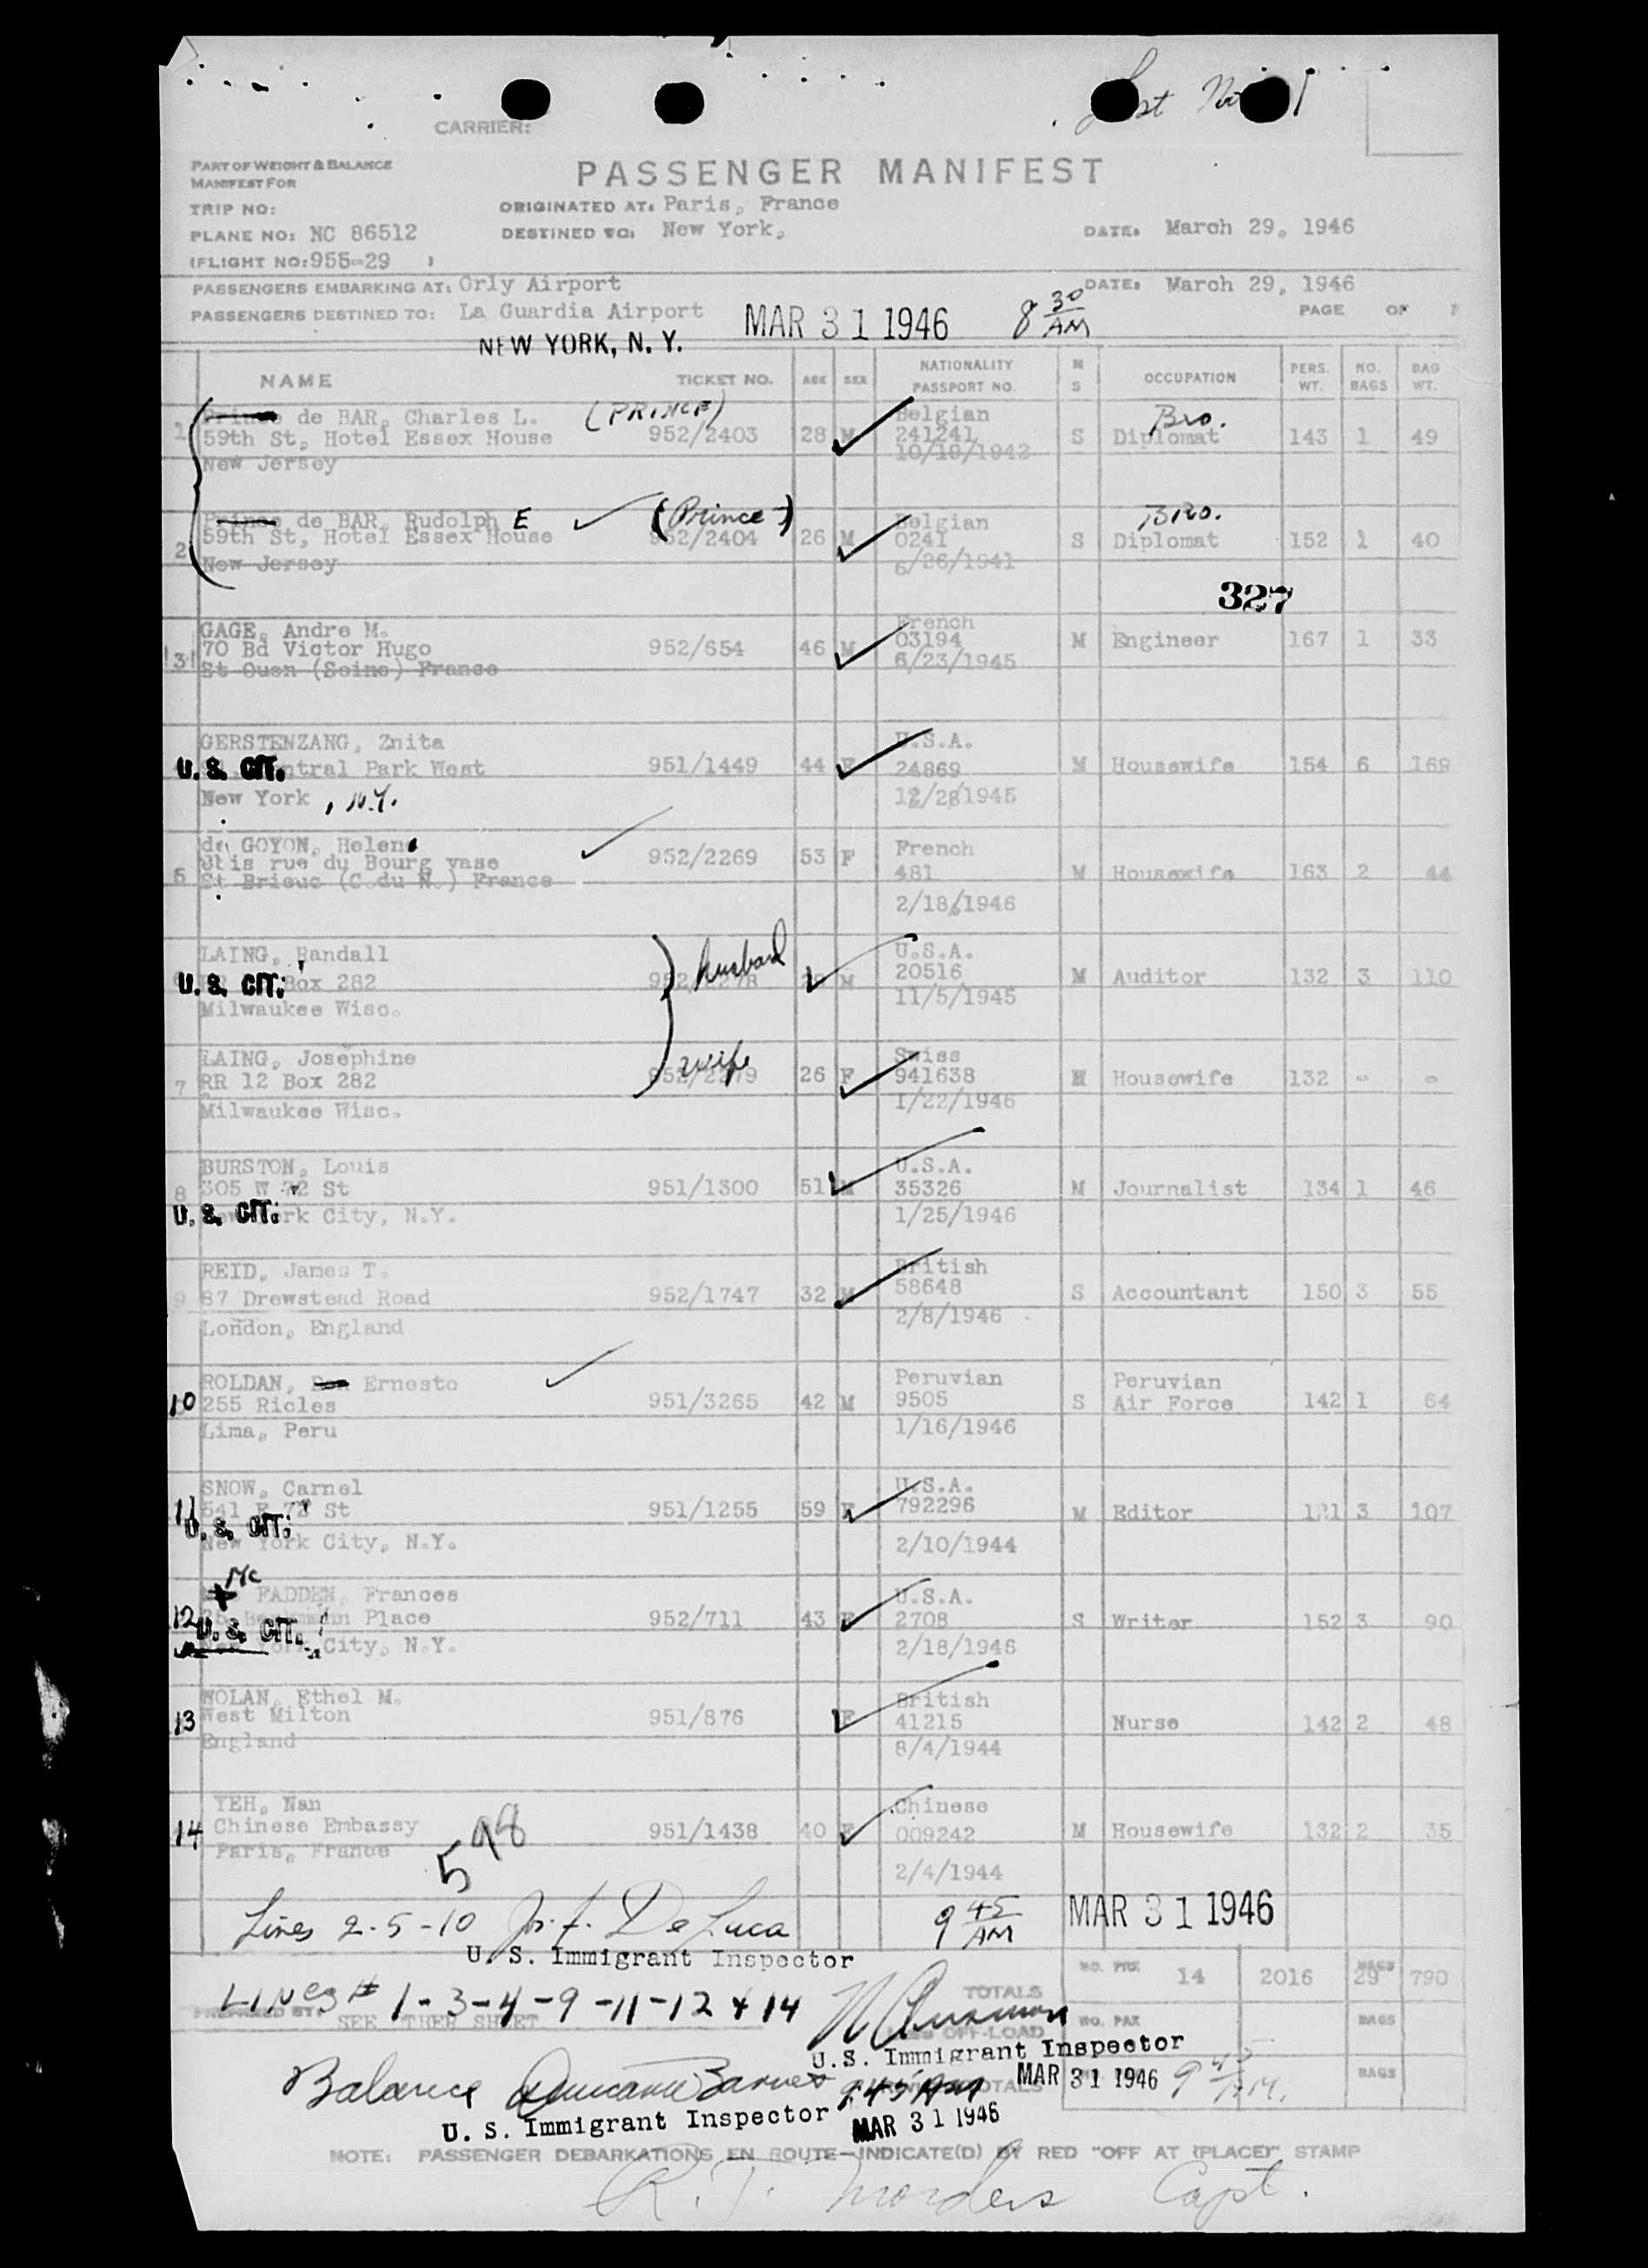 List No. 1
CARRIER:
PART OF WEIGHT & BALANCE
MANIFEST FOR
PASSENGER MANIFEST
TRIP NO:
ORIGINATED AT: Paris, France
PLANE NO: NC 86512
DESTINED TO: New York,
DATE: March 29, 1946
(FLIGHT NO: 955-29 )
PASSENGERS EMBARKING AT: Orly Airport
DATE: March 29, 1946
PASSENGERS DESTINED TO: La Guardia Airport
MAR 31 1946 8 30 AM
PAGE OF
NEW YORK, N. Y.
NAME TICKET NO. AGE SEX NATIONALITY PASSPORT NO. M S OCCUPATION PERS. WT. NO. BAGS BAG WT.
Prince de BAR, Charles L. (PRINCE) Belgian Bro.
1 59th St, Hotel Essex House 952/2403 28 M 241241 S Diplomat 143 1 49
New Jersey 10/19/1942
Prince de BAR, Rudolph E (Prince) Belgian BRO.
2 59th St, Hotel Essex House 952/2404 26 M 0241 S Diplomat 152 1 40
New Jersey 6/26/1941
327
GAGE, Andre M. French
3 70 Bd Victor Hugo 952/654 46 M 03194 M Engineer 167 1 33
St Ouen (Seine) France 6/23/1945
GERSTENZANG, Znita U.S.A.
U. S. CIT. Central Park West 951/1449 44 F 24869 M Housewife 154 6 168
New York, N.Y. 12/28/1945
de GOYON, Helene French
5 rue du Bourg vase 952/2269 53 F 481 M Housewife 163 2 44
St Brieuc (C.du N.) France 2/18/1946
LAING, Randall husband U.S.A.
U. S. CIT. Box 282 952/2278 29 M 20516 M Auditor 132 3 110
Milwaukee Wisc. 11/5/1945
LAING, Josephine wife Swiss
7 RR 12 Box 282 952/2279 26 F 941638 M Housewife 132 - -
Milwaukee Wisc. 1/22/1946
BURSTON, Louis U.S.A.
8 305 W 72 St 951/1300 51 M 35326 M Journalist 134 1 46
U. S. CIT. New York City, N.Y. 1/25/1946
REID, James T. British
9 87 Drewstead Road 952/1747 32 M 58648 S Accountant 150 3 55
London, England 2/8/1946
ROLDAN, Ernesto Peruvian Peruvian
10 255 Ricles 951/3265 42 M 9505 S Air Force 142 1 64
Lima, Peru 1/16/1946
SNOW, Carmel U.S.A.
11 541 E 72 St 951/1255 59 F 792296 M Editor 121 3 107
U. S. CIT.
New York City, N.Y. 2/10/1944
Mc FADDEN, Frances U.S.A.
12 Place 952/711 43 F 2708 S Writer 152 3 90
U. S. CIT. City, N.Y. 2/18/1946
NOLAN, Ethel M. British
13 West Milton 951/876 F 41215 Nurse 142 2 48
England 8/4/1944
YEH, Nan Chinese
14 Chinese Embassy 951/1438 40 F 009242 M Housewife 132 2 35
Paris, France 2/4/1944
598
Lines 2-5-10 De Luca 9 45 AM MAR 31 1946
U. S. Immigrant Inspector
NO. PAX 14 2016 BAGS 29 790
TOTALS
LINES # 1-3-4-9-11-12 + 14
PREPARED BY: SEE OTHER SHEET
OFF-LOAD NO. PAX BAGS
U.S. Immigrant Inspector
MAR 31 1946 9 45 A.M. BAGS
Balance Barnes 9:45 AM TOTALS
U. S. Immigrant Inspector MAR 31 1946
NOTE: PASSENGER DEBARKATIONS EN ROUTE—INDICATE(D) BY RED "OFF AT (PLACE)" STAMP
R. J. Capt.